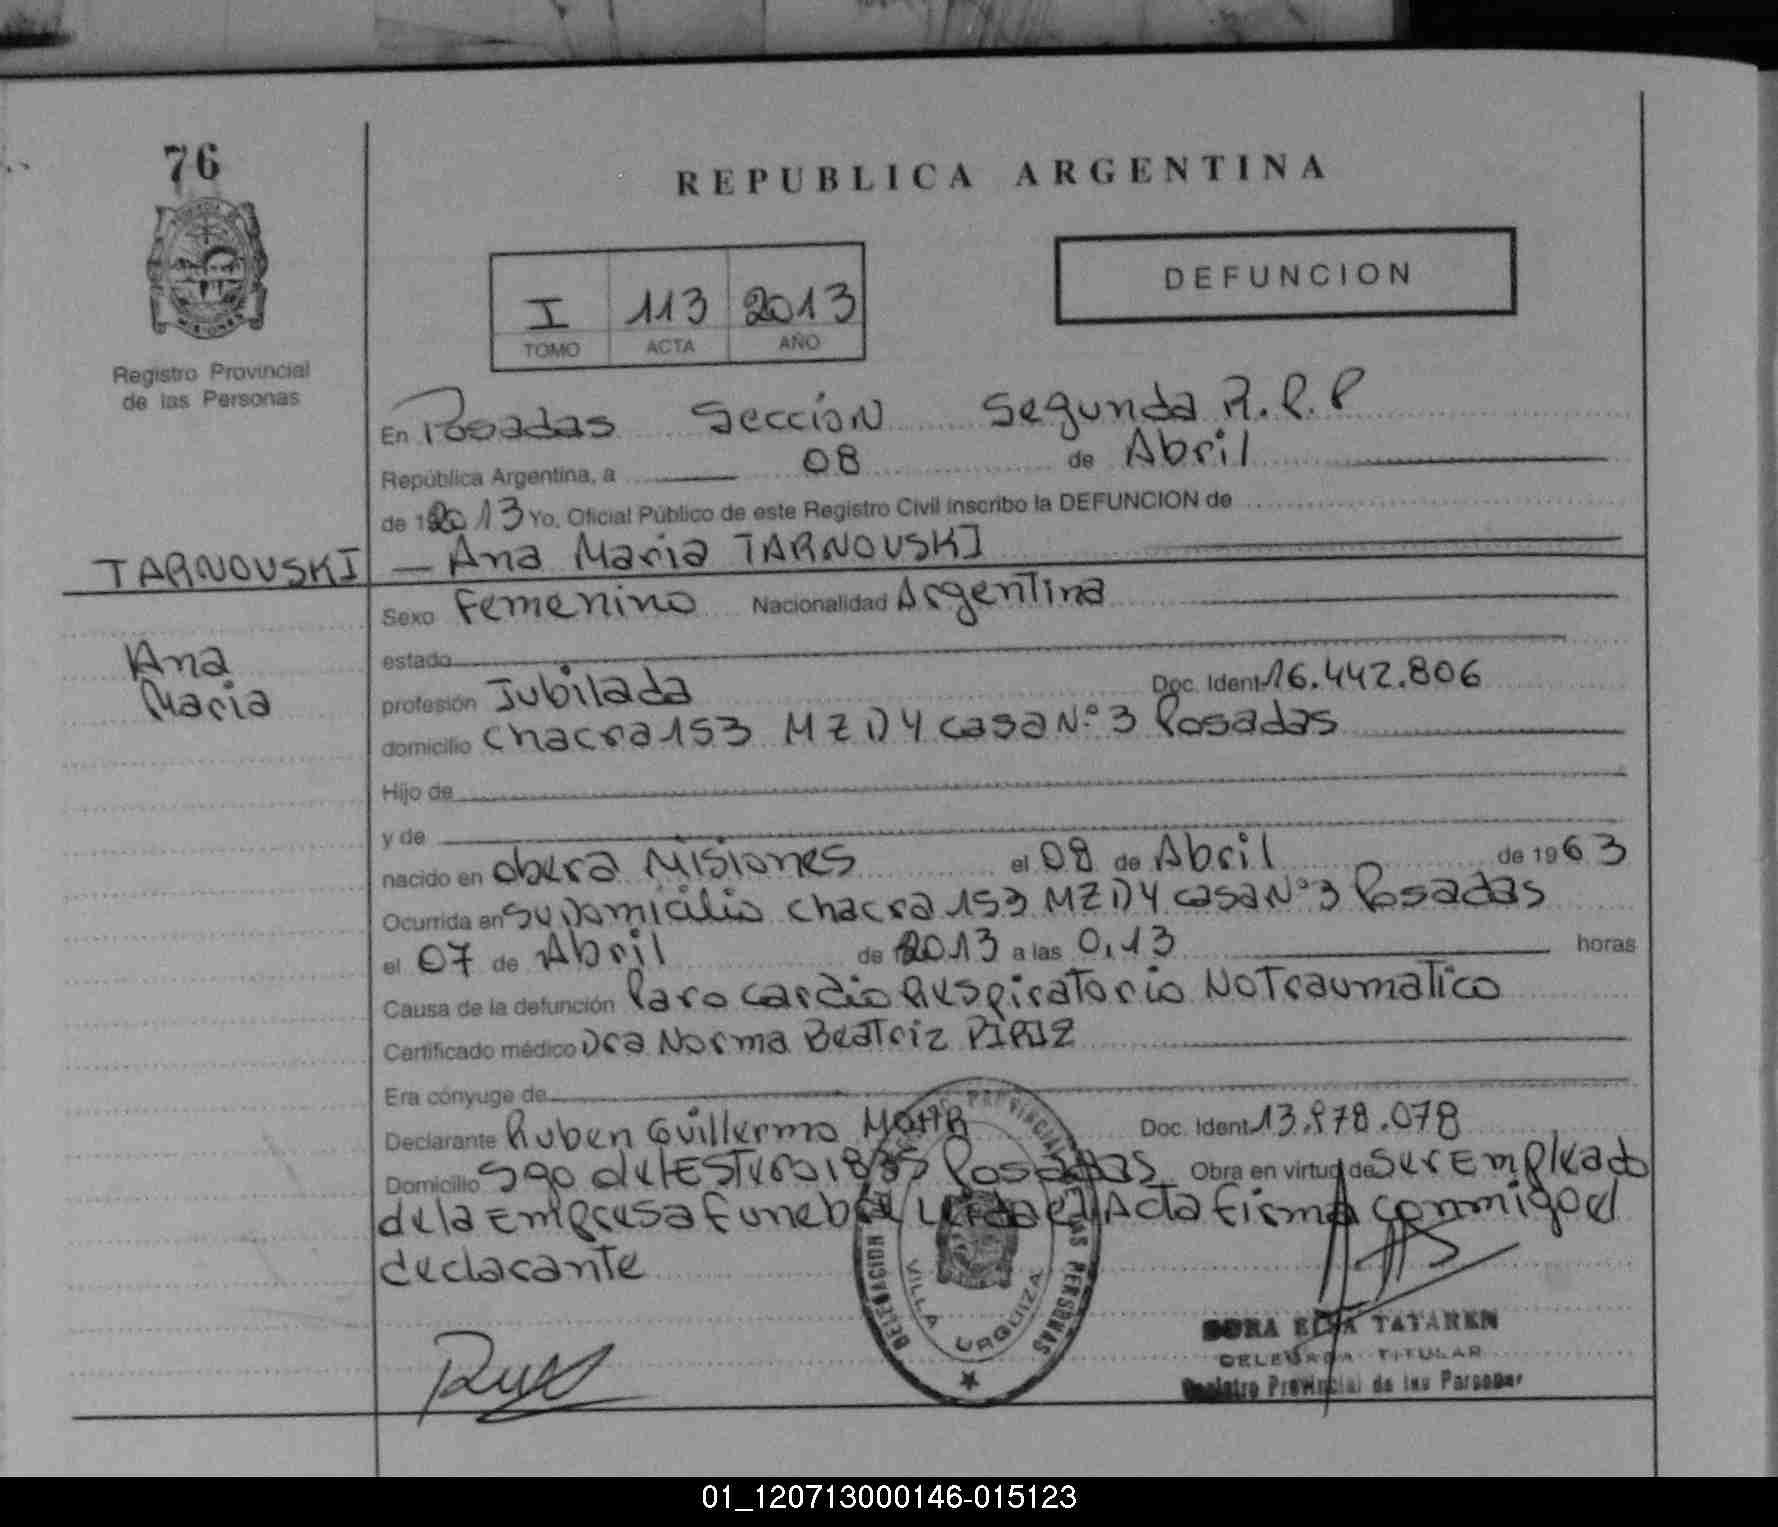 76
REPUBLICA ARGENTINA
DEFUNCION
I 113 2013
TOMO ACTA AÑO
Registro Provincial
de las Personas
En Posadas Seccion Segunda R.P.P
República Argentina, a 08 de Abril
de 2013 Yo, Oficial Público de este Registro Civil inscribo la DEFUNCION de
TARNOVSKI
Ana
Maria
Ana Maria TARNOVSKI
Sexo Femenino Nacionalidad Argentina
estado
profesión Jubilada Doc. Ident. 16.442.806
domicilio Chacra 153 MZ D4 casa Nº 3 Posadas
Hijo de
y de
nacido en obera Misiones el 08 de Abril de 1963
Ocurrida en su Domicilio Chacra 153 MZ D4 casa Nº 3 Posadas
el 07 de Abril de 2013 a las 0,13 horas
Causa de la defunción Paro Cardio Respiratorio No Traumatico
Certificado médico Dra Norma Beatriz PIRIZ
Era cónyuge de
Declarante Ruben Guillermo Doc. Ident. 078
Domicilio Sgo del Estero Posadas Obra en virtud de ser Empleado
de la Empresa Funebre Leida el Acta firma conmigo el
declarante
DELEGACION PROVINCIAL LAS PERSONAS
VILLA URQUIZA
TATAREN
DELEGADA TITULAR
Registro Provincial de las Personas
01_120713000146-015123